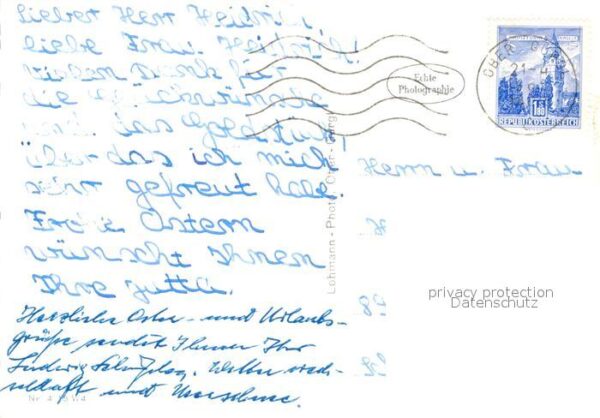 Lieber Herr Heidrich,
liebe Frau Heidrich!
vielen Dank für
die Glückwünsche
und das Geldstück,
über das ich mich
sehr gefreut habe.
Frohe Ostern
wünscht Ihnen
Ihre Jutta.
Herzliche Oster- und Urlaubs-
grüße sendet Ihnen Ihr
Ludwig
und
Nr.
Lohmann - Photo, Ober-Gurgl
Echte
Photographie
OBER GURGL
21
1.50
REPUBLIK ÖSTERREICH
Herrn u. Frau
89
privacy protection
Datenschutz